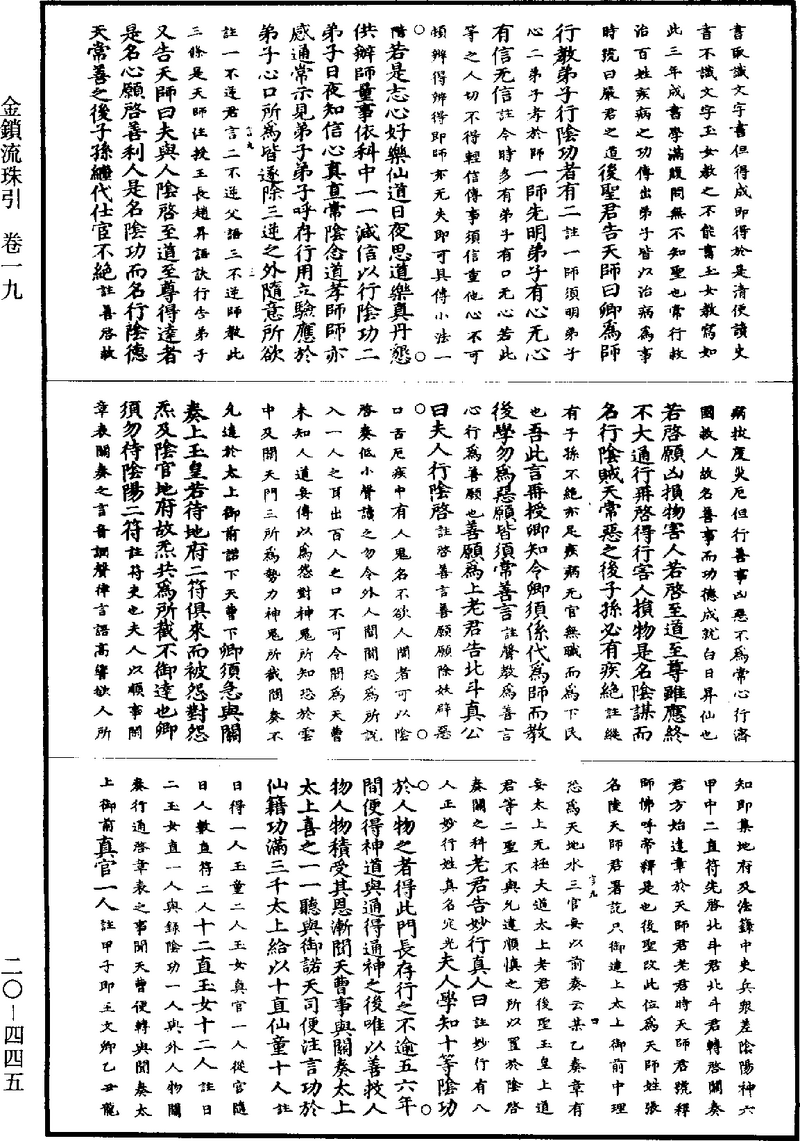 金鎖流珠引 卷一九
二〇—四四五
書取識文字書但得成即得於是清便讀史
書不識文字玉女教之不能書玉女教寫如
此三年成書學滿腹問無不知聖也常行救
治百姓疾病之功傳出弟子皆以治病為事
時號曰嚴君之道後聖君告天師曰卿為師
行教弟子行陰功者有二註一師須明弟子
心二弟子孝於師一師先明弟子有心无心
有信无信註今時多有弟子有口无心若此
等之人切不得輕信傳事須信重他心不可
傾辦得辦得即師亦无失即可具傳小法一
階若是志心好樂仙道日夜思道樂真丹懇
供辦師童事依科中一一誠信以行陰功二
弟子日夜知信心真直常陰念道孝師師亦
感通常示見弟子弟子呼存行用立驗應於
弟子心口所為皆遂除三逆之外隨意所欲
註一不逆君言二不逆父語三不逆師教此
三條是天師注教王長趙昇語訣行告弟子
又告天師曰夫與人陰啓至道至尊得達者
是名心願啓善利人是名陰功而名行陰德
天常善之後子孫繼代仕官不絶註善啓救
弱拔度災厄但行善事凶惡不為常心行濟
國救人故名善事而功德成就白日昇仙也
若啓願凶損物害人若啓至道至尊雖應終
不大通行再啓得行害人損物是名陰謀而
名行陰賊天常惡之後子孫必有疾絶註縱
有子孫不絶亦足疾病无官無職而為下民
也吾此言再授卿知令卿須係代為師而教
後學勿為惡願皆須常善言註聲教為善言
心行為善願也善願為上老君告北斗真公
曰夫人行陰啓註啓善言善願願除妖辟惡
口舌厄疾中有人鬼名不欲人聞者可以陰
啓奏低小聲讀之勿令外人聞聞恐為所説
入一人之耳出百人之口不可令聞為天曹
未知人道妄傳以為怨對神鬼所知恐於雲
中及聞天門三所為勢力神鬼所截聞奏不
允達於太上御前諾下天曹下卿須急與關
奏上玉皇若待地府二符俱來而被怨對怨
炁及陰官地府故炁共為所截不御達也卿
須勿待陰陽二符註符吏也夫人以順事聞
章表關奏之言音調聲律言語高響欲人所
知即集地府及法籙中吏兵衆差陰陽神六
甲中二直符先啓北斗君北斗君轉啓聞奏
君方始達章於天師君老君時天師君號釋
師佛呼帝釋是也後聖改此位為天師姓張
名陵天師君署訖只御達上太上御前中理
恐為天地水三官妄以前奏云某乙奏章有
妄太上无極大道太上老君後聖玉皇上道
君等二聖不與允達順慎之所以置於陰啓
奏關之科老君告妙行真人曰註妙行有八
人正妙行姓真名定光夫人學知十等陰功
於人物之者得此門長存行之不逾五六年
間便得神道與通得通神之後唯以善救人
物人物積受其恩漸聞天曹事與關奏太上
太上喜之一一聽與御諾天司便注言功於
仙籍功滿三千太上給以十直仙童十人註
日得一人玉童二人玉女真官一人從官隨
日人數直符二人十二直玉女十二人註日
二玉女直一人與錄陰功一人與外人物關
奏行通啓章表之事聞天曹便轉與聞奏太
上御前真官一人註甲子即王文卿乙丑龍